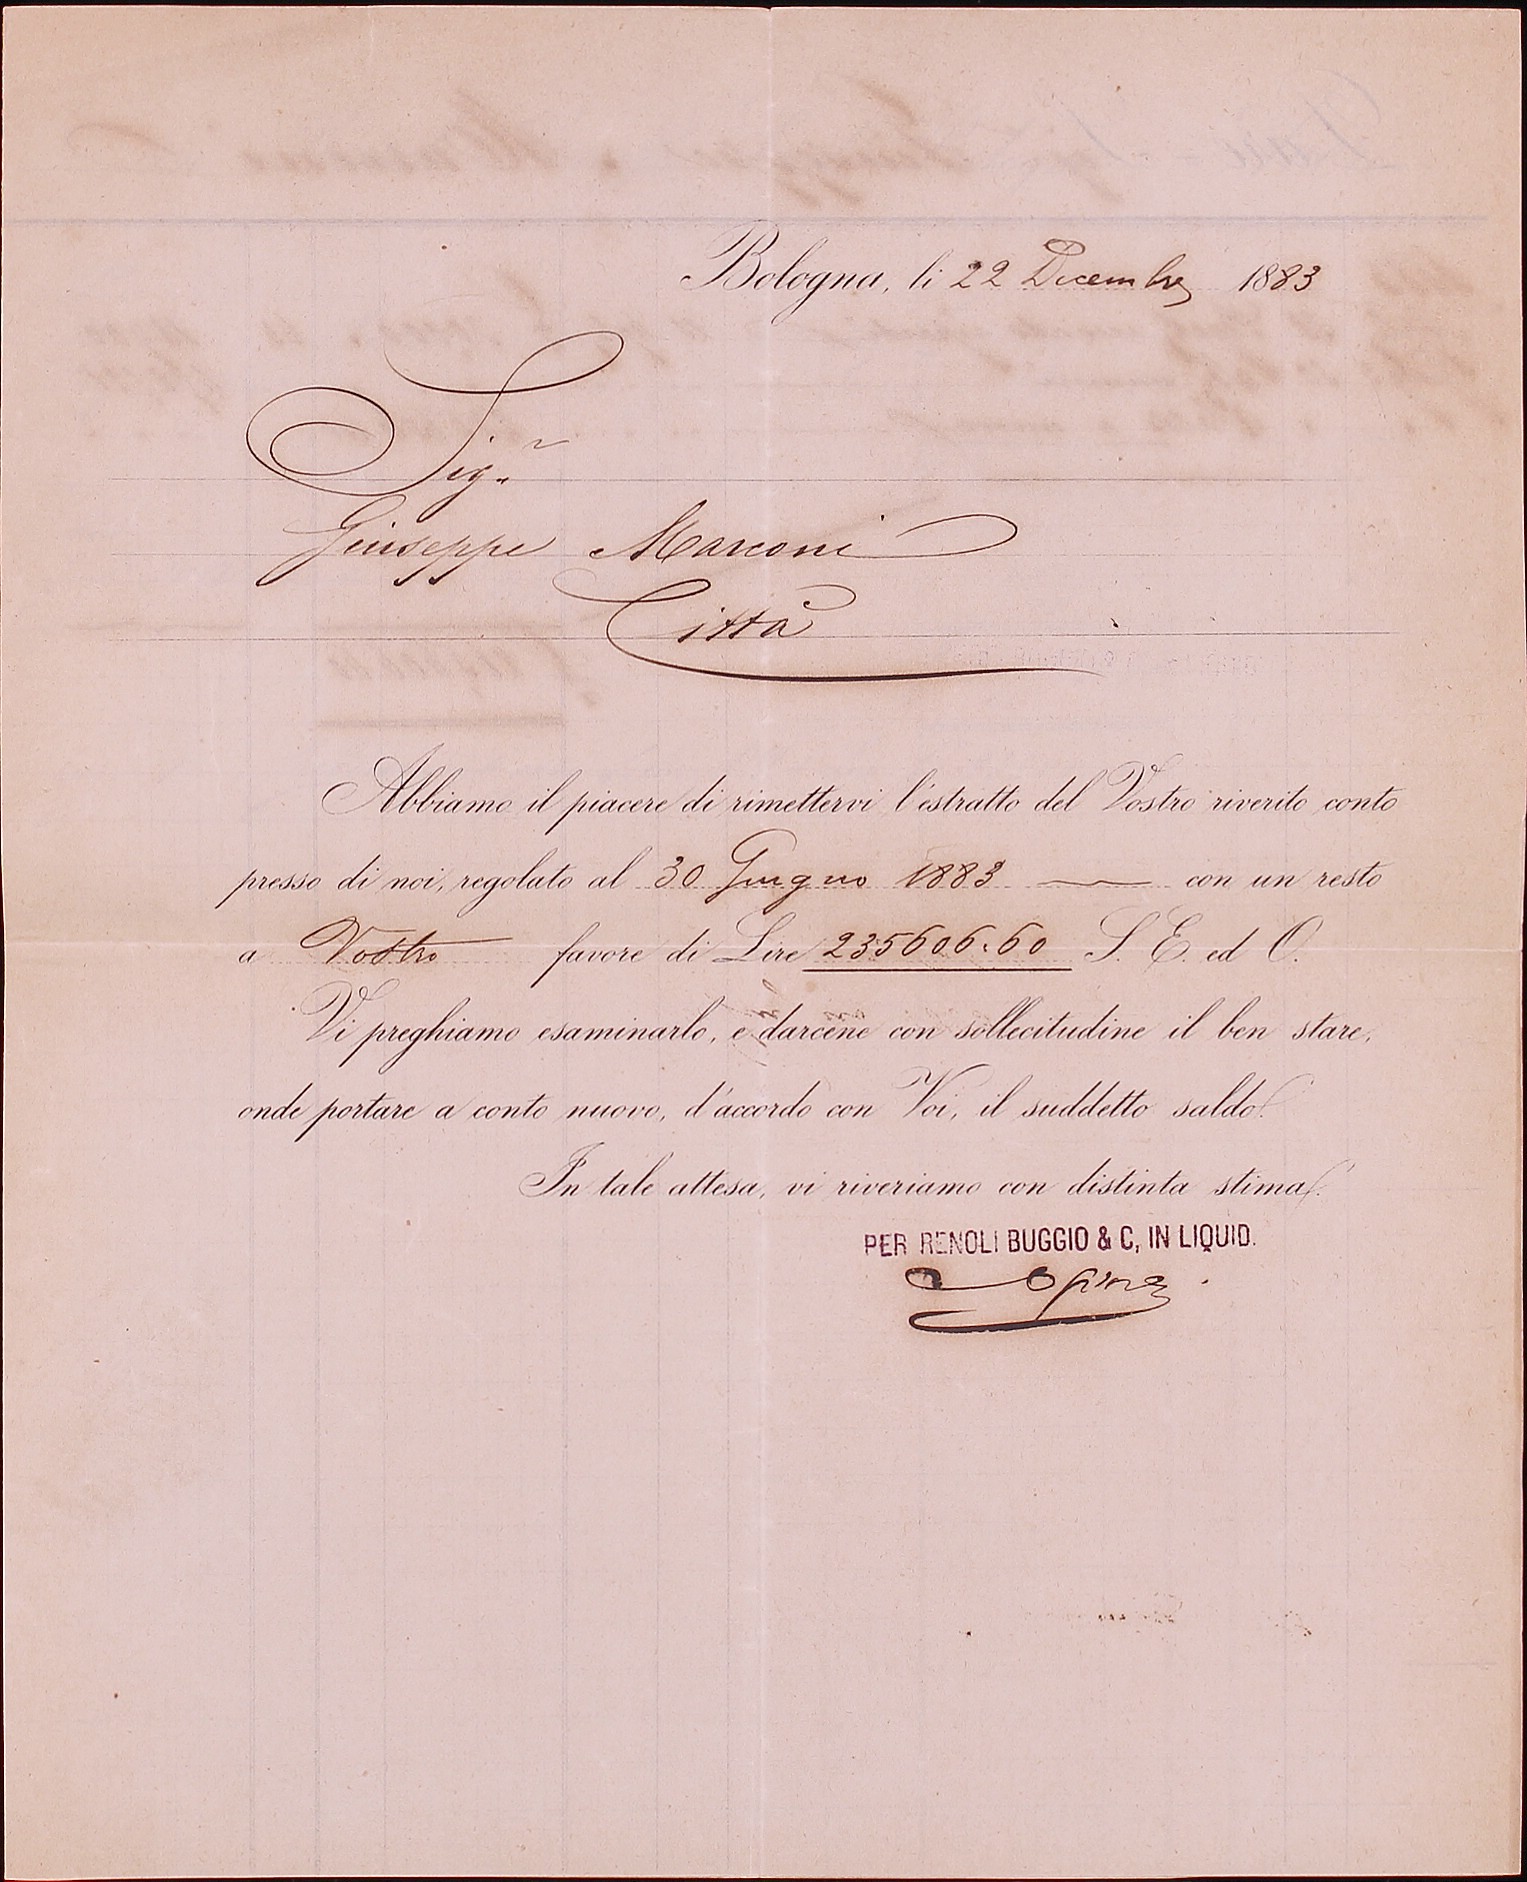 Bologna, li 22 Decembre 1883
Sig.r
Giuseppe Marconi
Città
Abbiamo il piacere di rimettervi l'estratto del Vostro riverito conto
presso di noi, regolato al 30 Giugno 1883 — con un resto
a Vostro favore di Lire 235606.60 S. E. ed O.
Vi preghiamo esaminarlo, e darcene con sollecitudine il ben stare,
onde portare a conto nuovo, d'accordo con Voi, il suddetto saldo.
In tale attesa, vi riveriamo con distinta stima.
PER RENOLI BUGGIO & C, IN LIQUID.